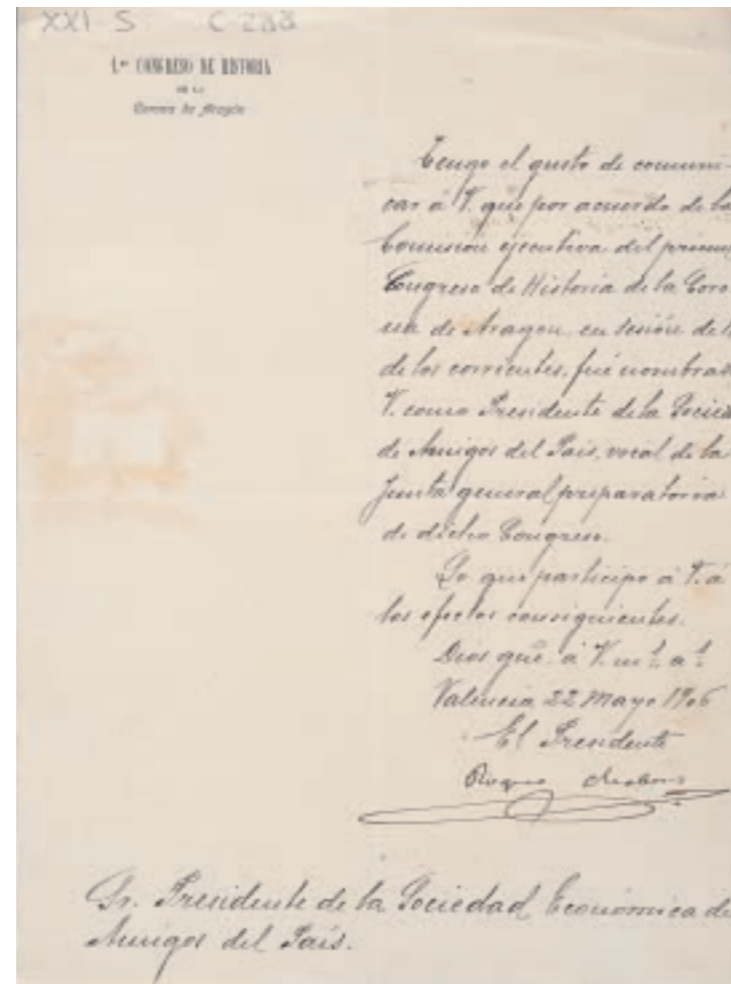 XXI S C-288
1.er CONGRESO DE HISTORIA
DE LA
Corona de Aragón
Tengo el gusto de comuni-
car á V. que por acuerdo de la
Comisión ejecutiva del primer
Congreso de Historia de la Coro
na de Aragon, en sesión del
de los corrientes, fué nombrad
V. como Presidente de la Socied
de Amigos del Pais, vocal de la
Junta general preparatoria
de dicho Congreso.
Lo que participo á V. á
los efectos consiguientes.
Dios gue. á V. ms. as.
Valencia 22 Mayo 1906
El Presidente
Roque Chabas
Sr. Presidente de la Sociedad Económica de
Amigos del Pais.